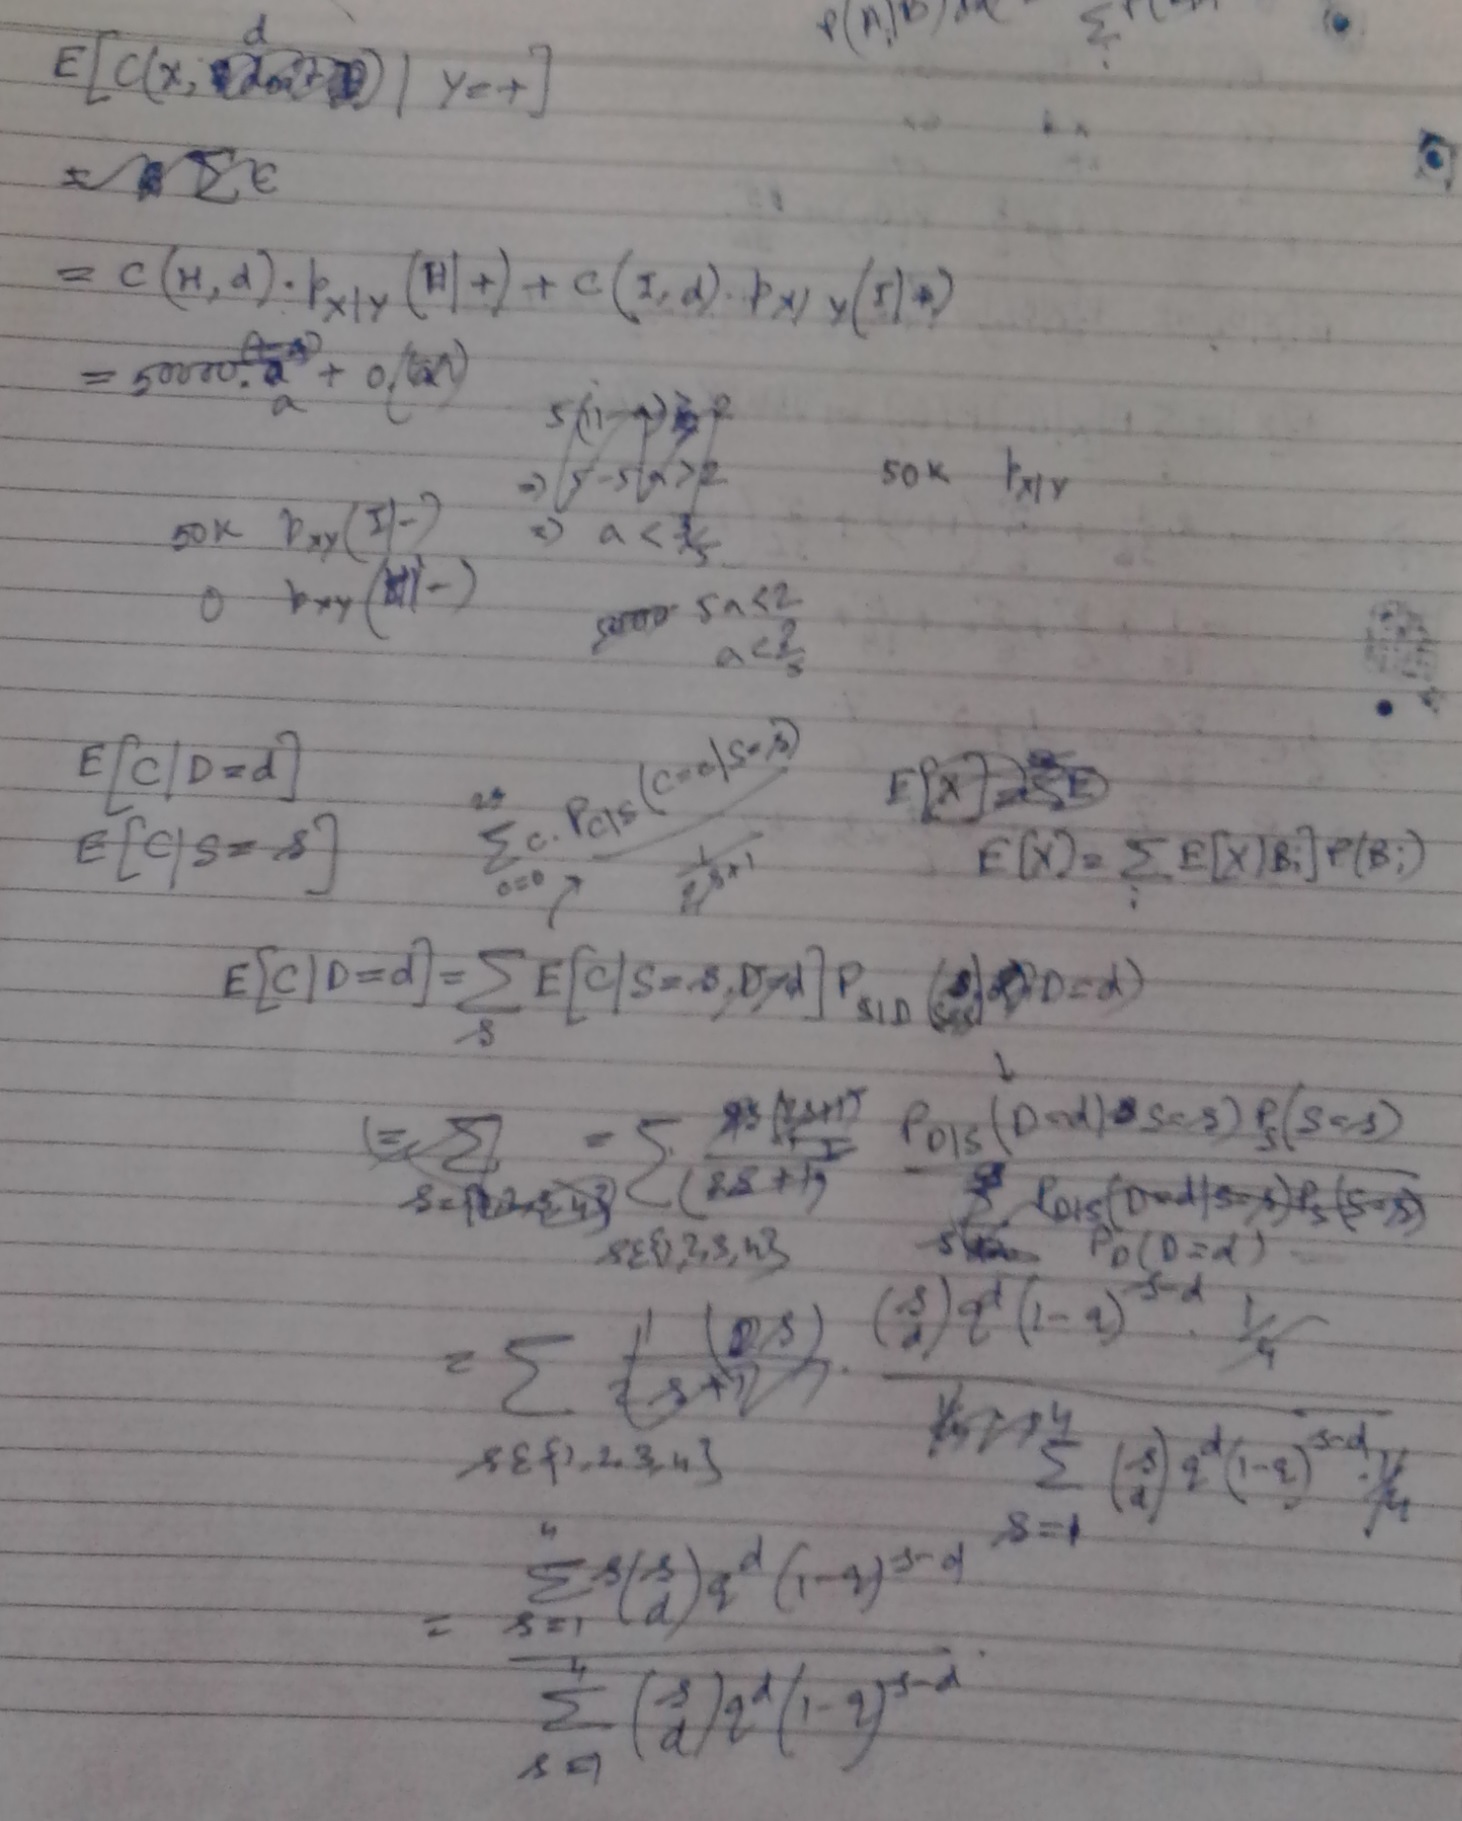 E[C(X, d) | Y=+]
= Σ
= C(H,d)·p_{X|Y}(H|+) + C(I,d)·p_{X|Y}(I|+)
= 50000· a + 0
5(1-a) > 2
⇒ 5-5a > 2
⇒ a < 3/5
50K p_{X|Y}
50K p_{XY}(I|-)
0 p_{XY}(H|-)
5a<2
a<2/5
E[C|D=d]
E[C|S=s]
Σ_{c=0}^{2s} c· P_{C|S}(C=c|S=s)
1/(2s+1)
E[X] = Σ E
E[X] = Σ_i E[X|B_i] P(B_i)
E[C|D=d] = Σ_s E[C|S=s, D=d] P_{S|D}(s|D=d)
= Σ_{s∈{1,2,3,4}} (2s+1) P_{D|S}(D=d|S=s) P_S(S=s)
P_{D|S}(D=d|S=s) P_S(S=s)
P_D(D=d)
= Σ_{s∈{1,2,3,4}} (s) · (s d) q^d (1-q)^{s-d} · 1/4
Σ_{s=1}^{4} (s d) q^d (1-q)^{s-d} · 1/4
= Σ_{s=1}^{4} s (s d) q^d (1-q)^{s-d}
Σ_{s=1}^{4} (s d) q^d (1-q)^{s-d}